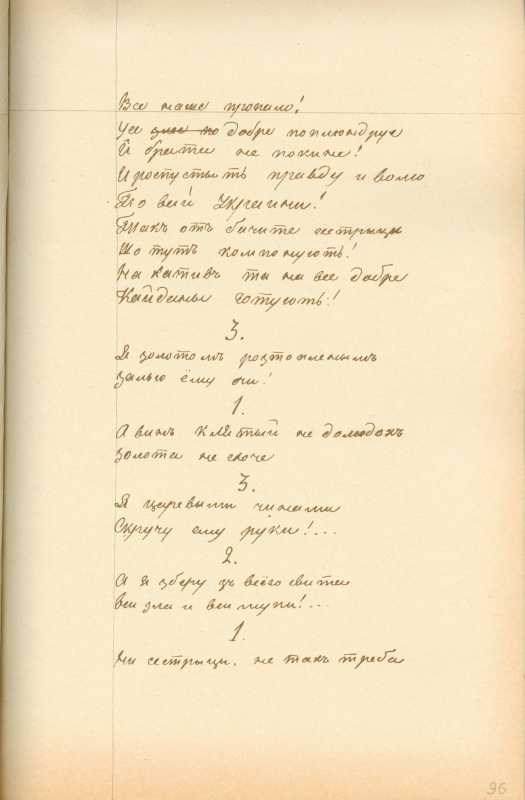 Все наше пропало!
Усе злое по добре поплюндруе
И брата не покине!
И роспустыть правду и волю
По всій Украини!
Такъ отъ бачите сестрыцы
Що тутъ компонують!
На кативъ та на все добре
Кайданы готують!
3.
Я золотомъ розтопленымъ
залью ёму очи!
1.
А винъ клятый не долюдокъ
золота не схоче
3.
Я царевыми чинами
Скручу ему руки!...
2.
А я зберу зъ всёго свита
вси зла и вси муки!...
1.
Ни сестрыцы. не такъ треба
96